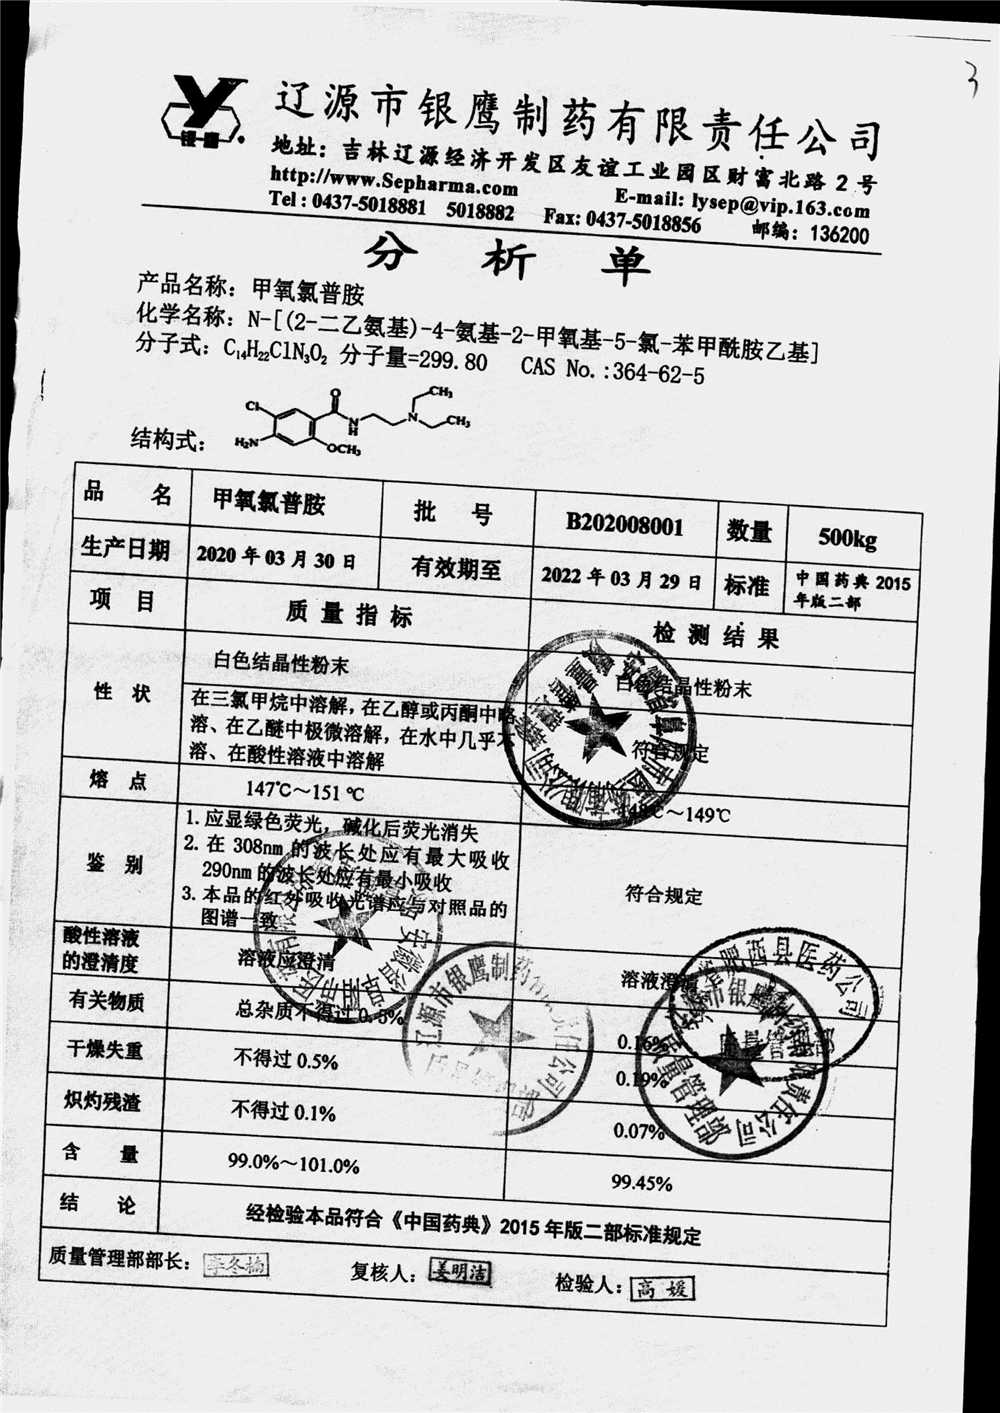 3
银鹰
辽源市银鹰制药有限责任公司
地址：吉林辽源经济开发区友谊工业园区财富北路2号
http://www.Sepharma.com E-mail: lysep@vip.163.com
Tel : 0437-5018881 5018882 Fax: 0437-5018856 邮编：136200
分析单
产品名称：甲氧氯普胺
化学名称：N-[(2-二乙氨基)-4-氨基-2-甲氧基-5-氯-苯甲酰胺乙基]
分子式：C₁₄H₂₂ClN₃O₂ 分子量=299.80 CAS No.:364-62-5
结构式：
Cl O N H N CH₃ CH₃ H₂N OCH₃
品名 甲氧氯普胺 批号 B202008001 数量 500kg
生产日期 2020年03月30日 有效期至 2022年03月29日 标准 中国药典2015
年版二部
项目 质量指标 检测结果
性状 白色结晶性粉末 白色结晶性粉末
在三氯甲烷中溶解，在乙醇或丙酮中略
溶、在乙醚中极微溶解，在水中几乎不
溶、在酸性溶液中溶解 符合规定
熔点 147℃～151℃ ～149℃
鉴别 1.应显绿色荧光，碱化后荧光消失
2.在308nm的波长处应有最大吸收
290nm的波长处应有最小吸收
3.本品的红外吸收光谱应与对照品的
图谱一致 符合规定
酸性溶液
的澄清度 溶液应澄清 溶液澄清
有关物质 总杂质不得过0.5% 0.16%
干燥失重 不得过0.5% 0.19%
炽灼残渣 不得过0.1% 0.07%
含量 99.0%～101.0% 99.45%
结论 经检验本品符合《中国药典》2015年版二部标准规定
质量管理部部长： 复核人：姜明洁 检验人：高媛
辽源市银鹰制药有限责任公司
质量管理部
肥西县医药公司
质量管理部